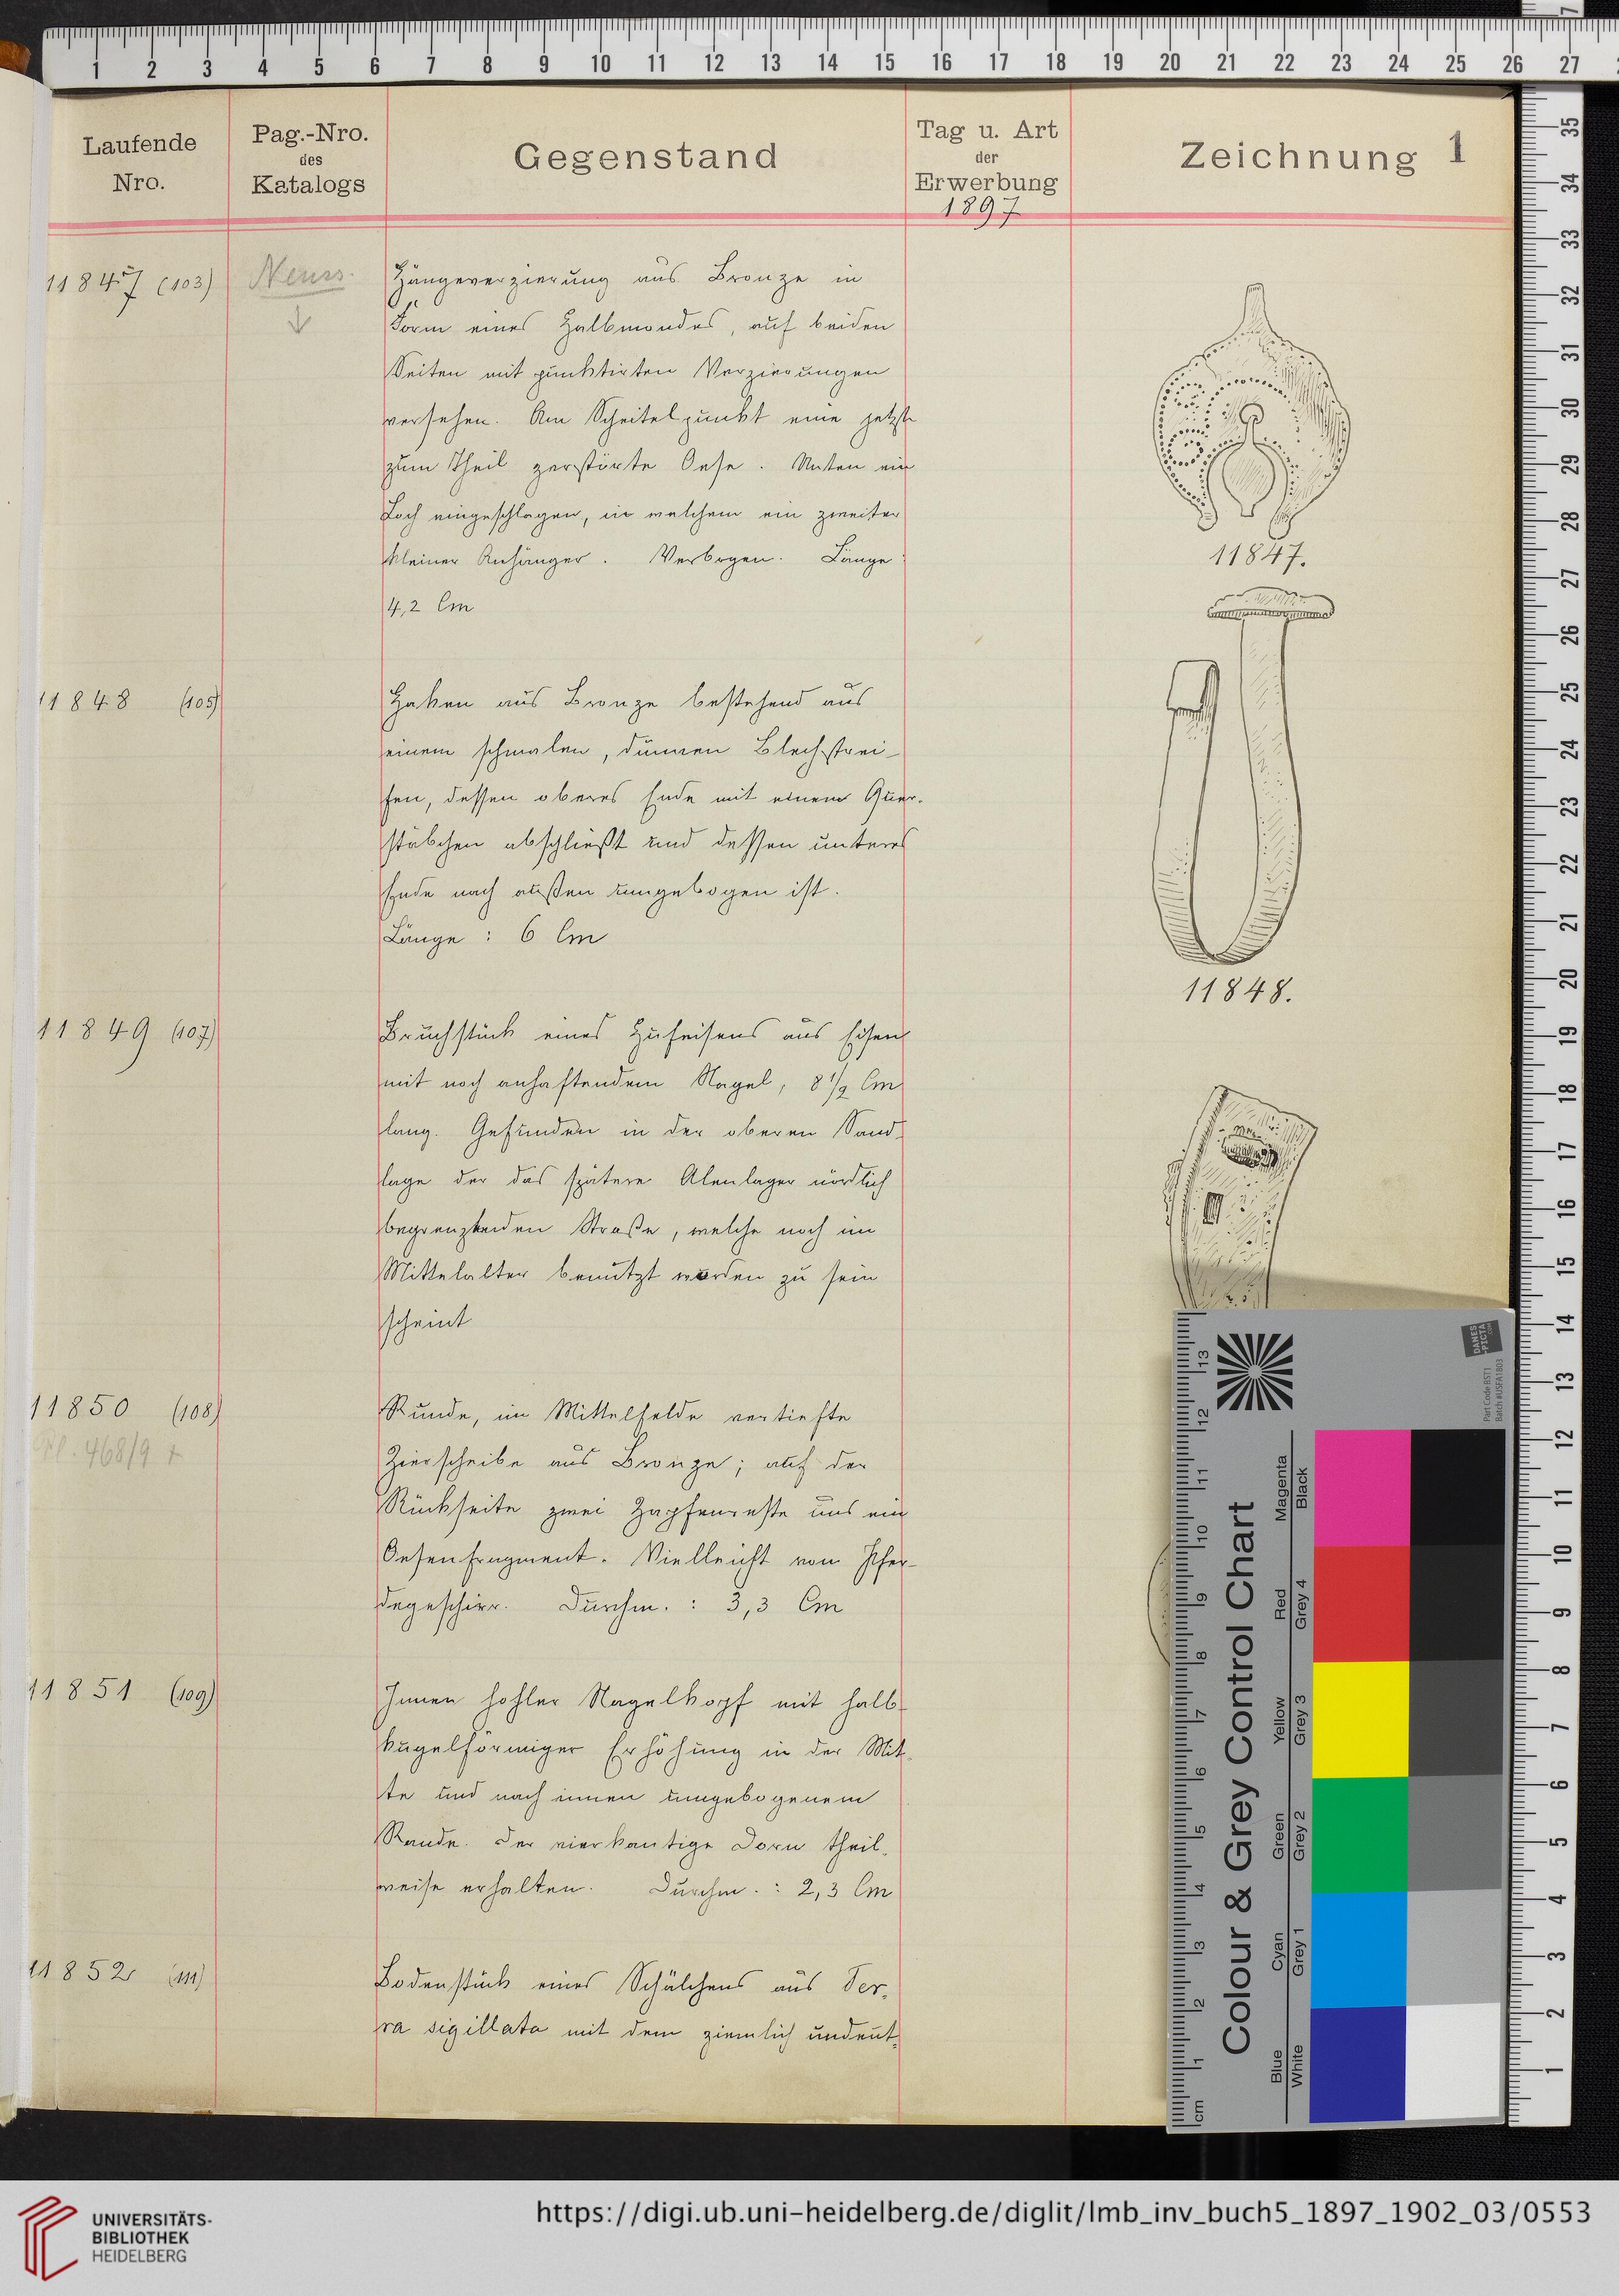 Laufende
Nro.
Pag.-Nro.
des
Katalogs
Gegenstand
Tag u. Art
der
Erwerbung
1897
Zeichnung
1
11847 (103)
Neuss.
Hängeverzierung aus Bronze in
Form eines Halbmondes, auf beiden
Seiten mit punktirten Verzierungen
versehen. Am Scheitelpunkt eine jetzt
zum Theil zerstörte Oese. Unten ein
Loch eingeschlagen, in welchem ein zweiter
kleiner Anhänger. Verbogen. Länge
4,2 Cm
11847.
11848 (105)
Haken aus Bronze bestehend aus
einem schmalen, dünnen Blechstrei-
fen, dessen oberes Ende mit einem Quer-
stäbchen abschließt und dessen unteres
Ende nach außen umgebogen ist.
Länge : 6 Cm
11848.
11849 (107)
Bruchstück eines Hufeisens aus Eisen
mit noch anhaftendem Nagel, 8 1/2 Cm
lang. Gefunden in der oberen Sand-
lage der das spätere Alenlager nördlich
begrenzenden Straße, welche noch im
Mittelalter benutzt worden zu sein
scheint
11850 (108)
Pl. 468/9 +
Runde, im Mittelfelde vertiefte
Zierscheibe aus Bronze; auf der
Rückseite zwei Zapfenreste uns ein
Oesenfragment. Vielleicht von Pfer-
degeschirr. Durchm. : 3,3 Cm
11851 (109)
Innen hohler Nagelkopf mit halb-
kugelförmiger Erhöhung in der Mit-
te und nach innen umgebogenem
Rande. Der vierkantige Dorn theil-
weise erhalten. Durchm. : 2,3 Cm
11852 (111)
Bodenstück eines Schälchens aus Ter-
ra sigillata mit dem ziemlich undeut-
Colour & Grey Control Chart
Magenta
Black
Red
Grey 4
Yellow
Grey 3
Green
Grey 2
Cyan
Grey 1
Blue
White
cm
1 2 3 4 5 6 7 8 9 10 11 12 13
DANES
-PICTA
.COM
Part Code BST1
1 2 3 4 5 6 7 8 9 10 11 12 13 14 15 16 17 18 19 20 21 22 23 24 25 26 27
35 34 33 32 31 30 29 28 27 26 25 24 23 22 21 20 19 18 17 16 15 14 13 12 11 10 9 8 7 6 5 4 3 2 1
UNIVERSITÄTS-
BIBLIOTHEK
HEIDELBERG
https://digi.ub.uni-heidelberg.de/diglit/lmb_inv_buch5_1897_1902_03/0553